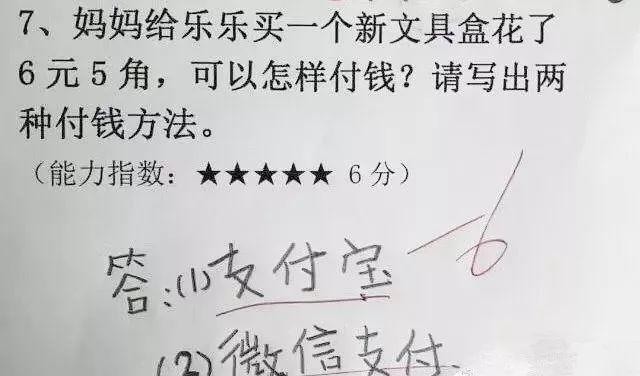 7、妈妈给乐乐买一个新文具盒花了
6元5角，可以怎样付钱？请写出两
种付钱方法。
（能力指数：★★★★★ 6分）
答：(1)支付宝
-6
(2)微信支付.